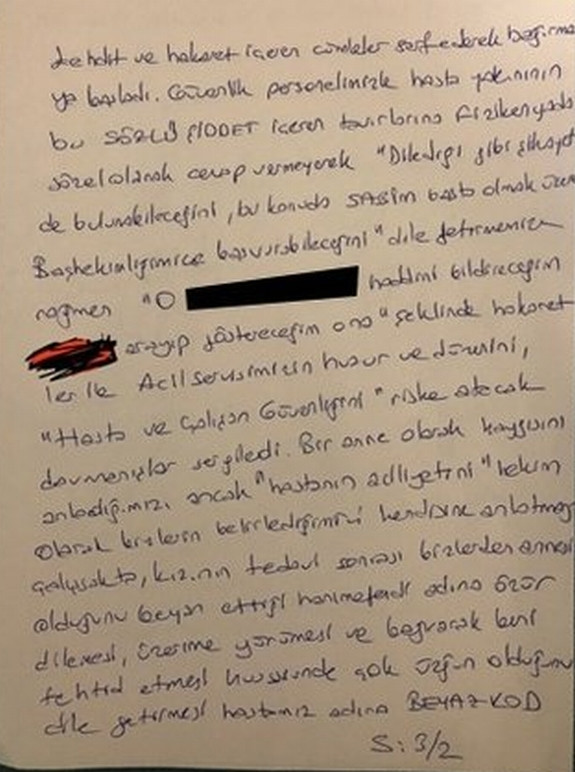 tehdit ve hakaret içeren cümleler sarfederek bağırma
ya başladı. Güvenlik personelimizle hasta yakınının
bu SÖZLÜ ŞİDDET içeren tavırlarına fiziken yada
sözel olarak cevap vermeyerek "Dilediği gibi şikayet
de bulunabileceğini, bu konuda SABİM başta olmak üzere
Başhekimliğimize başvurabileceğini" dile getirmemize
rağmen "O haddini bildireceğim
arayıp göstereceğim ona" şeklinde hakaret
ler ile Acil Servisimizin huzur ve düzenini,
"Hasta ve Çalışan Güvenliğini" riske atacak
davranışlar sergiledi. Bir anne olarak kaygısını
anladığımızı ancak "hastanın aciliyetini" hekim
olarak bizlerin belirlediğimizi kendisine anlatmaya
çalışsakta, kızının tedavi sonrası bizlerden annesi
olduğunu beyan ettiği hanımefendi adına özür
dilemesi, üzerime yürümesi ve bağırarak beni
tehtid etmesi hususunda çok üzgün olduğunu
dile getirmesi hastamız adına BEYAZ KOD
S: 3/2